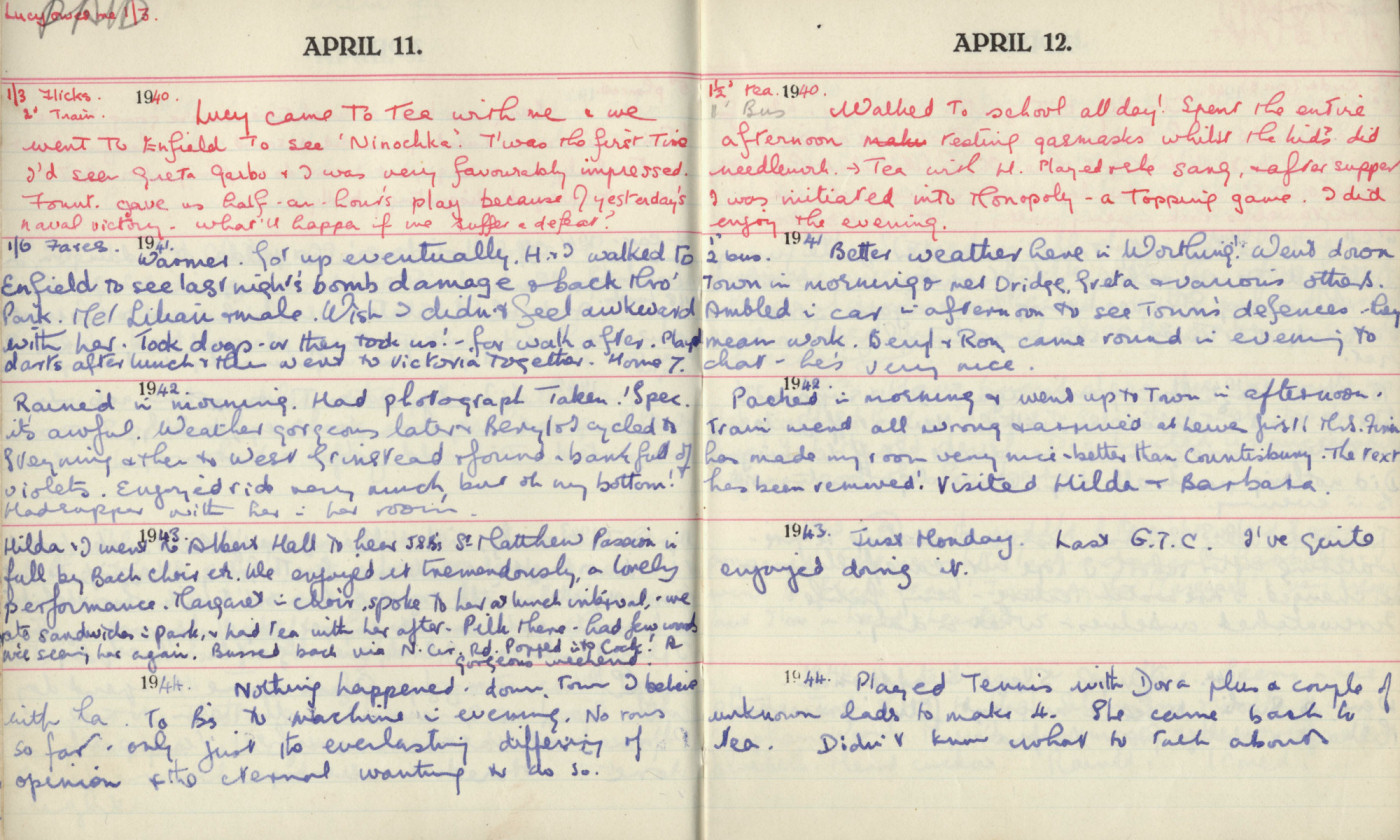 Lucy owes me 1/3.
PAID
APRIL 11.
1/3 Flicks.
2' Train.
1940.
Lucy came to Tea with me & we
went to Enfield to see 'Ninochka'. T'was the first Time
I'd seen Greta Garbo & I was very favourably impressed.
Fount. gave us half-an-hour's play because of yesterday's
naval victory - what'll happen if we suffer a defeat?
1/6 Fares.
1941.
Warmer. Got up eventually. H. & I walked to
Enfield to see last night's bomb damage & back thro'
Park. Met Lilian & male. Wish I didn't feel awkward
with her. Took dogs - or they took us! - for walk after. Played
darts after lunch & then went to Victoria together. Home 7.
1942
Rained in morning. Had photograph Taken. ! Spec.
it's awful. Weather gorgeous later & Beryl & I cycled to
Steyning & then to West Grinstead & found a bank full of
violets. Enjoyed ride very much, but oh my bottom!
Had supper with her in her room.
1943.
Hilda & I went to Albert Hall to hear J.S.B's St. Matthew Passion in
full by Bach choir etc. We enjoyed it tremendously, a lovely
performance. Margaret in choir, spoke to her at lunch interval, we
ate sandwiches in park, & had tea with her after. Pilk there - had few words
nice seeing her again. Bussed back via N. Cir. Rd. Popped into Cock! A
gorgeous weekend.
1944.
Nothing happened, down Town I believe
with La To B's to machine in evening. No rows
so far - only just its everlasting differing of
opinion & the eternal wanting to do so.
APRIL 12.
1½' Tea.
1' Bus
1940.
Walked to school all day! Spent the entire
afternoon testing gasmasks whilst the kids did
needlework. → Tea with H. Played & she sang, & after supper
I was initiated into Monopoly - a Topping game. I did
enjoy the evening.
2' bus.
1941
Better weather here in Worthing! Went down
Town in morning & met Dridge, Greta & various others.
Ambled in car in afternoon to see Town's defences - they
mean work. Beryl & Ron came round in evening to
chat - he's very nice.
1942.
Packed in morning & went up to Town in afternoon.
Train went all wrong & arrived at here first! Mrs.
has made my room very nice - better than Countisbury. The text
has been removed! Visited Hilda & Barbara.
1943.
Just Monday. Last G.T.C. I've quite
enjoyed doing it.
1944.
Played Tennis with Dora plus a couple of
unknown lads to make 4. She came back to
tea. Didn't know what to talk about